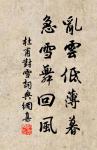 亂雲低薄暮
急雪舞回風
杜甫對雪詞典網喜